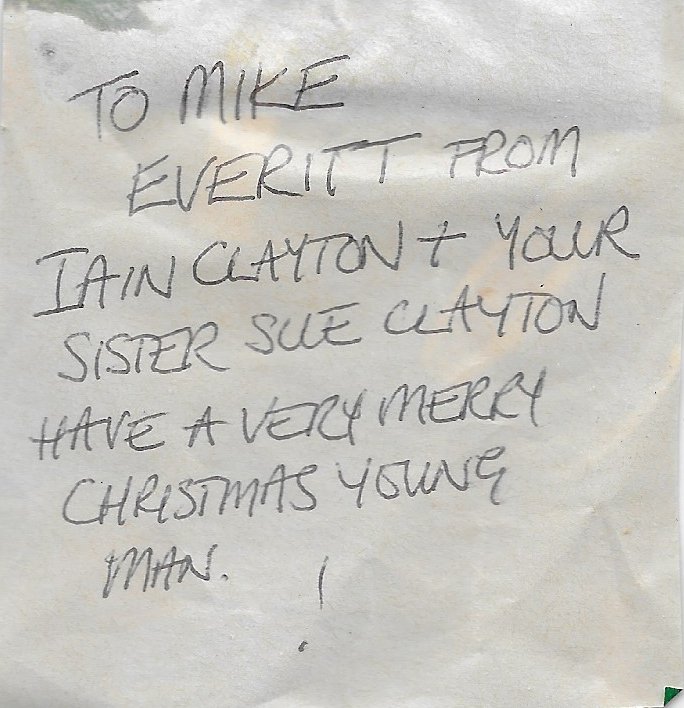 TO MIKE
EVERITT FROM
IAIN CLAYTON + YOUR
SISTER SUE CLAYTON
HAVE A VERY MERRY
CHRISTMAS YOUNG
MAN. !